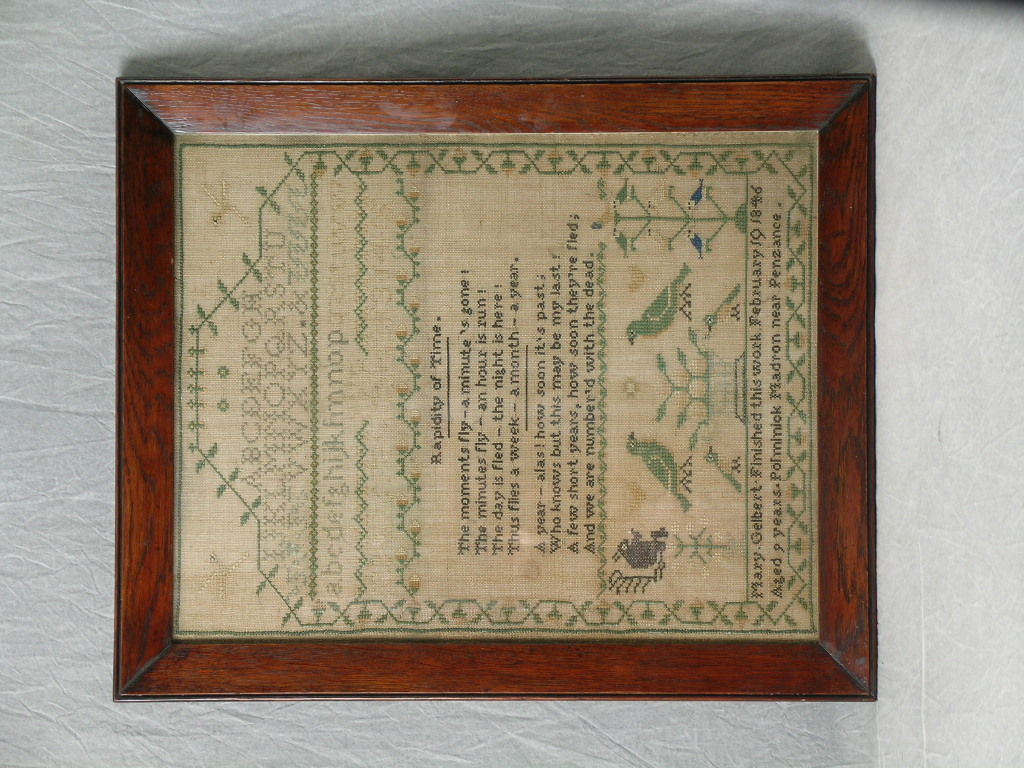 ABCDEFGH
IJKLMNOPQRSTU
VWXYZ &
abcdefghijklmnop
Rapidity of Time.
The moments fly – a minute's gone!
The minutes fly – an hour is run!
The day is fled – the night is here!
Thus flies a week – a month – a year.
A year – alas! how soon it's past;
Who knows but this may be my last!
A few short years, how soon they're fled;
And we are number'd with the dead.
Mary. Gelbert. Finished this work February 19 1846
Aged 9 years. Polminick Madron near Penzance.